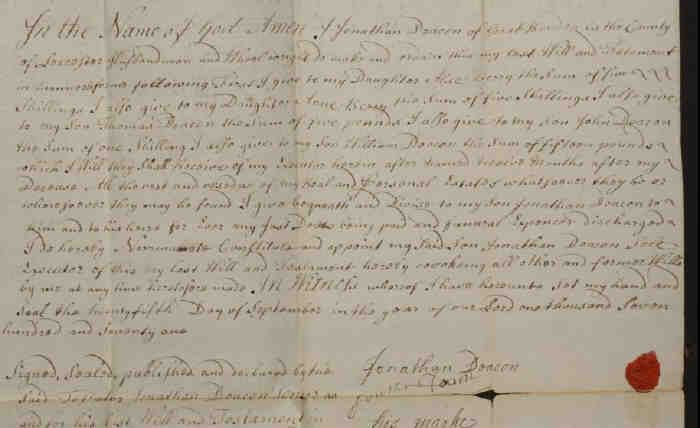 In the Name of God Amen I Jonathan Deacon of Great Bowden in the County
of Leicester Husbandman and Woolcomber do make and ordain this my last Will and Testament
in manner form following First I give to my Daughter Alice Berry the Sum of five
Shillings I also give to my Daughter Anne Berry the Sum of five Shillings I also give
to my Son Thomas Deacon the Sum of five pounds I also give to my son John Deacon
the Sum of one Shilling I also give to my Son William Deacon the Sum of fifteen pounds
which I Will they Shall Receive of my Executor herein after named twelve Months after my
Decease All the rest and residue of my Real and Personal Estates whatsoever they be or
wheresoever they may be found I give bequeath and Devise to my Son Jonathan Deacon to
him and to his heirs for Ever my Just Debts being paid and funeral Expences discharged
I do hereby Nominate Constitute and appoint my Said Son Jonathan Deacon Sole
Executor of this my last Will and Testament hereby revoking all other and former Wills
by me at any time heretofore made In Witness whereof I have hereunto set my hand and
seal the twentyfifth Day of September in the year of our Lord one thousand Seven
hundred and seventy one
Signed, Sealed, published and declared by the
Jonathan Deacon
said Testator Jonathan Deacon as
and for his last Will and Testament in
his marke